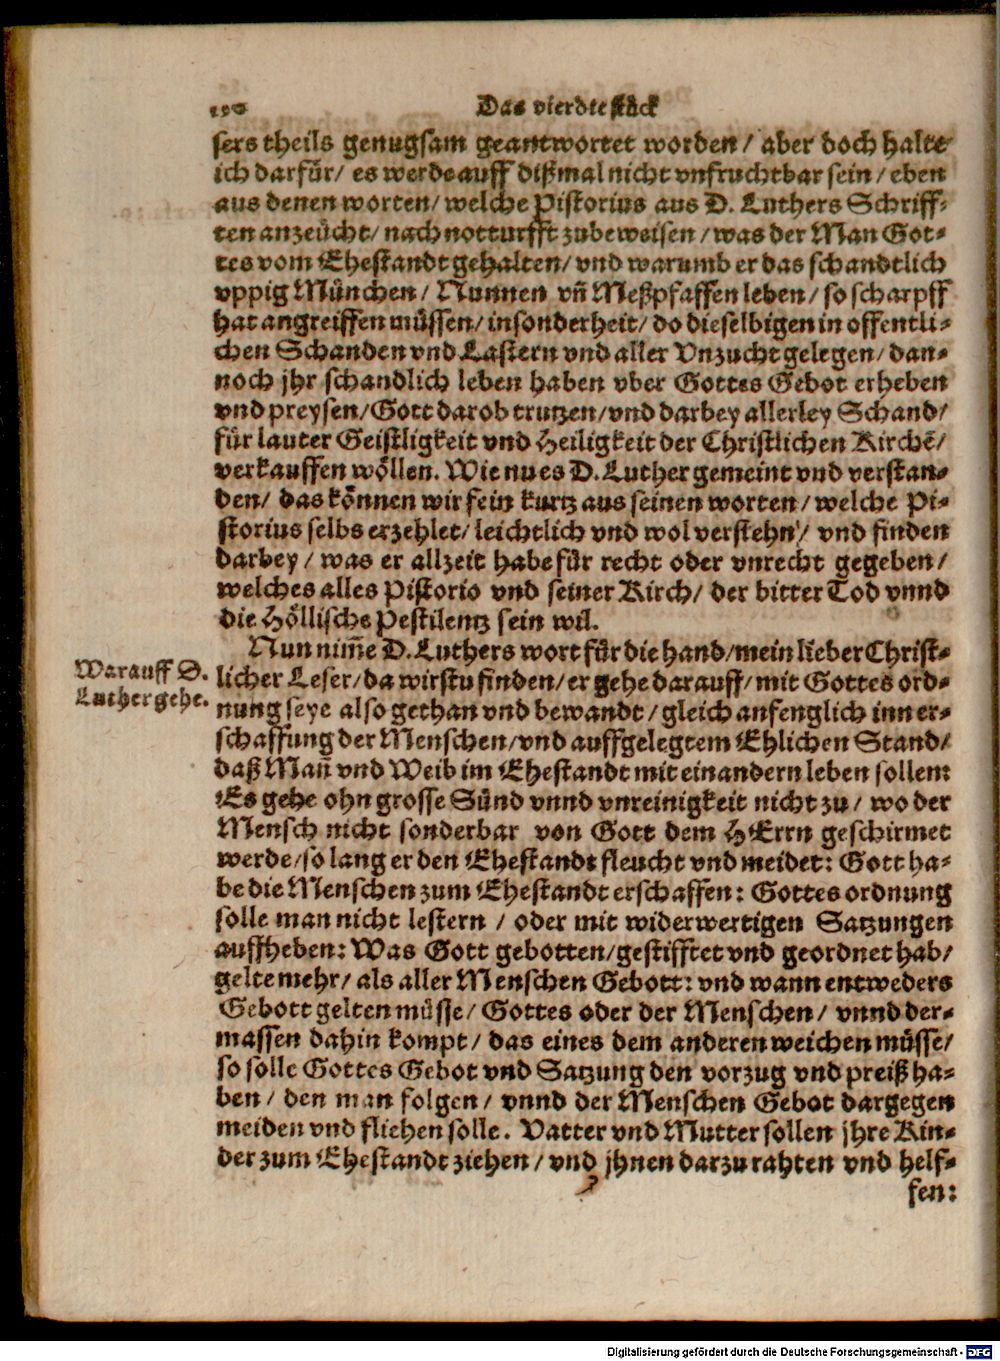 150 Das vierdte stück
sers theils genugsam geantwortet worden / aber doch halte
ich darfür / es werde auff dißmal nicht vnfruchtbar sein / eben
aus denen worten / welche Pistorius aus D. Luthers Schriff-
ten anzeücht / nach notturfft zubeweisen / was der Man Got-
tes vom Ehestandt gehalten / vnd warumb er das schandtlich
vppig München / Nunnen vñ Meßpfaffen leben / so scharpff
hat angreiffen müssen / insonderheit / do dieselbigen in offentli-
chen Schanden vnd Lastern vnd aller Vnzucht gelegen / dan-
noch jhr schandlich leben haben vber Gottes Gebot erheben
vnd preysen / Gott darob trutzen / vnd darbey allerley Schand /
für lauter Geistligkeit vnd Heiligkeit der Christlichen Kirchẽ /
verkauffen wöllen. Wie nu es D. Luther gemeint vnd verstan-
den / das können wir fein kurtz aus seinen worten / welche Pi-
storius selbs erzehlet / leichtlich vnd wol verstehn / vnd finden
darbey / was er allzeit habe für recht oder vnrecht gegeben /
welches alles Pistorio vnd seiner Kirch / der bitter Tod vnnd
die Höllische Pestilentz sein wil.
Nun nim̃e D. Luthers wort für die hand / mein lieber Christ-
Warauff D.
Luther gehe.
licher Leser / da wirstu finden / er gehe darauff / mit Gottes ord-
nung seye also gethan vnd bewandt / gleich anfenglich inn er-
schaffung der Menschen / vnd auffgelegtem Ehlichen Stand /
daß Mañ vnd Weib im Ehestandt mit einandern leben sollen:
Es gehe ohn grosse Sünd vnnd vnreinigkeit nicht zu / wo der
Mensch nicht sonderbar von Gott dem HErrn geschirmet
werde / so lang er den Ehestandt fleucht vnd meidet: Gott ha-
be die Menschen zum Ehestandt erschaffen: Gottes ordnung
solle man nicht lestern / oder mit widerwertigen Satzungen
auffheben: Was Gott gebotten / gestifftet vnd geordnet hab /
gelte mehr / als aller Menschen Gebott: vnd wann entweders
Gebott gelten müsse / Gottes oder der Menschen / vnnd der-
massen dahin kompt / das eines dem anderen weichen müsse /
so solle Gottes Gebot vnd Satzung den vorzug vnd preiß ha-
ben / den man folgen / vnnd der Menschen Gebot dargegen
meiden vnd fliehen solle. Vatter vnd Mutter sollen jhre Kin-
der zum Ehestandt ziehen / vnd jhnen darzu rahten vnd helf-
fen:
Digitalisierung gefördert durch die Deutsche Forschungsgemeinschaft - DFG